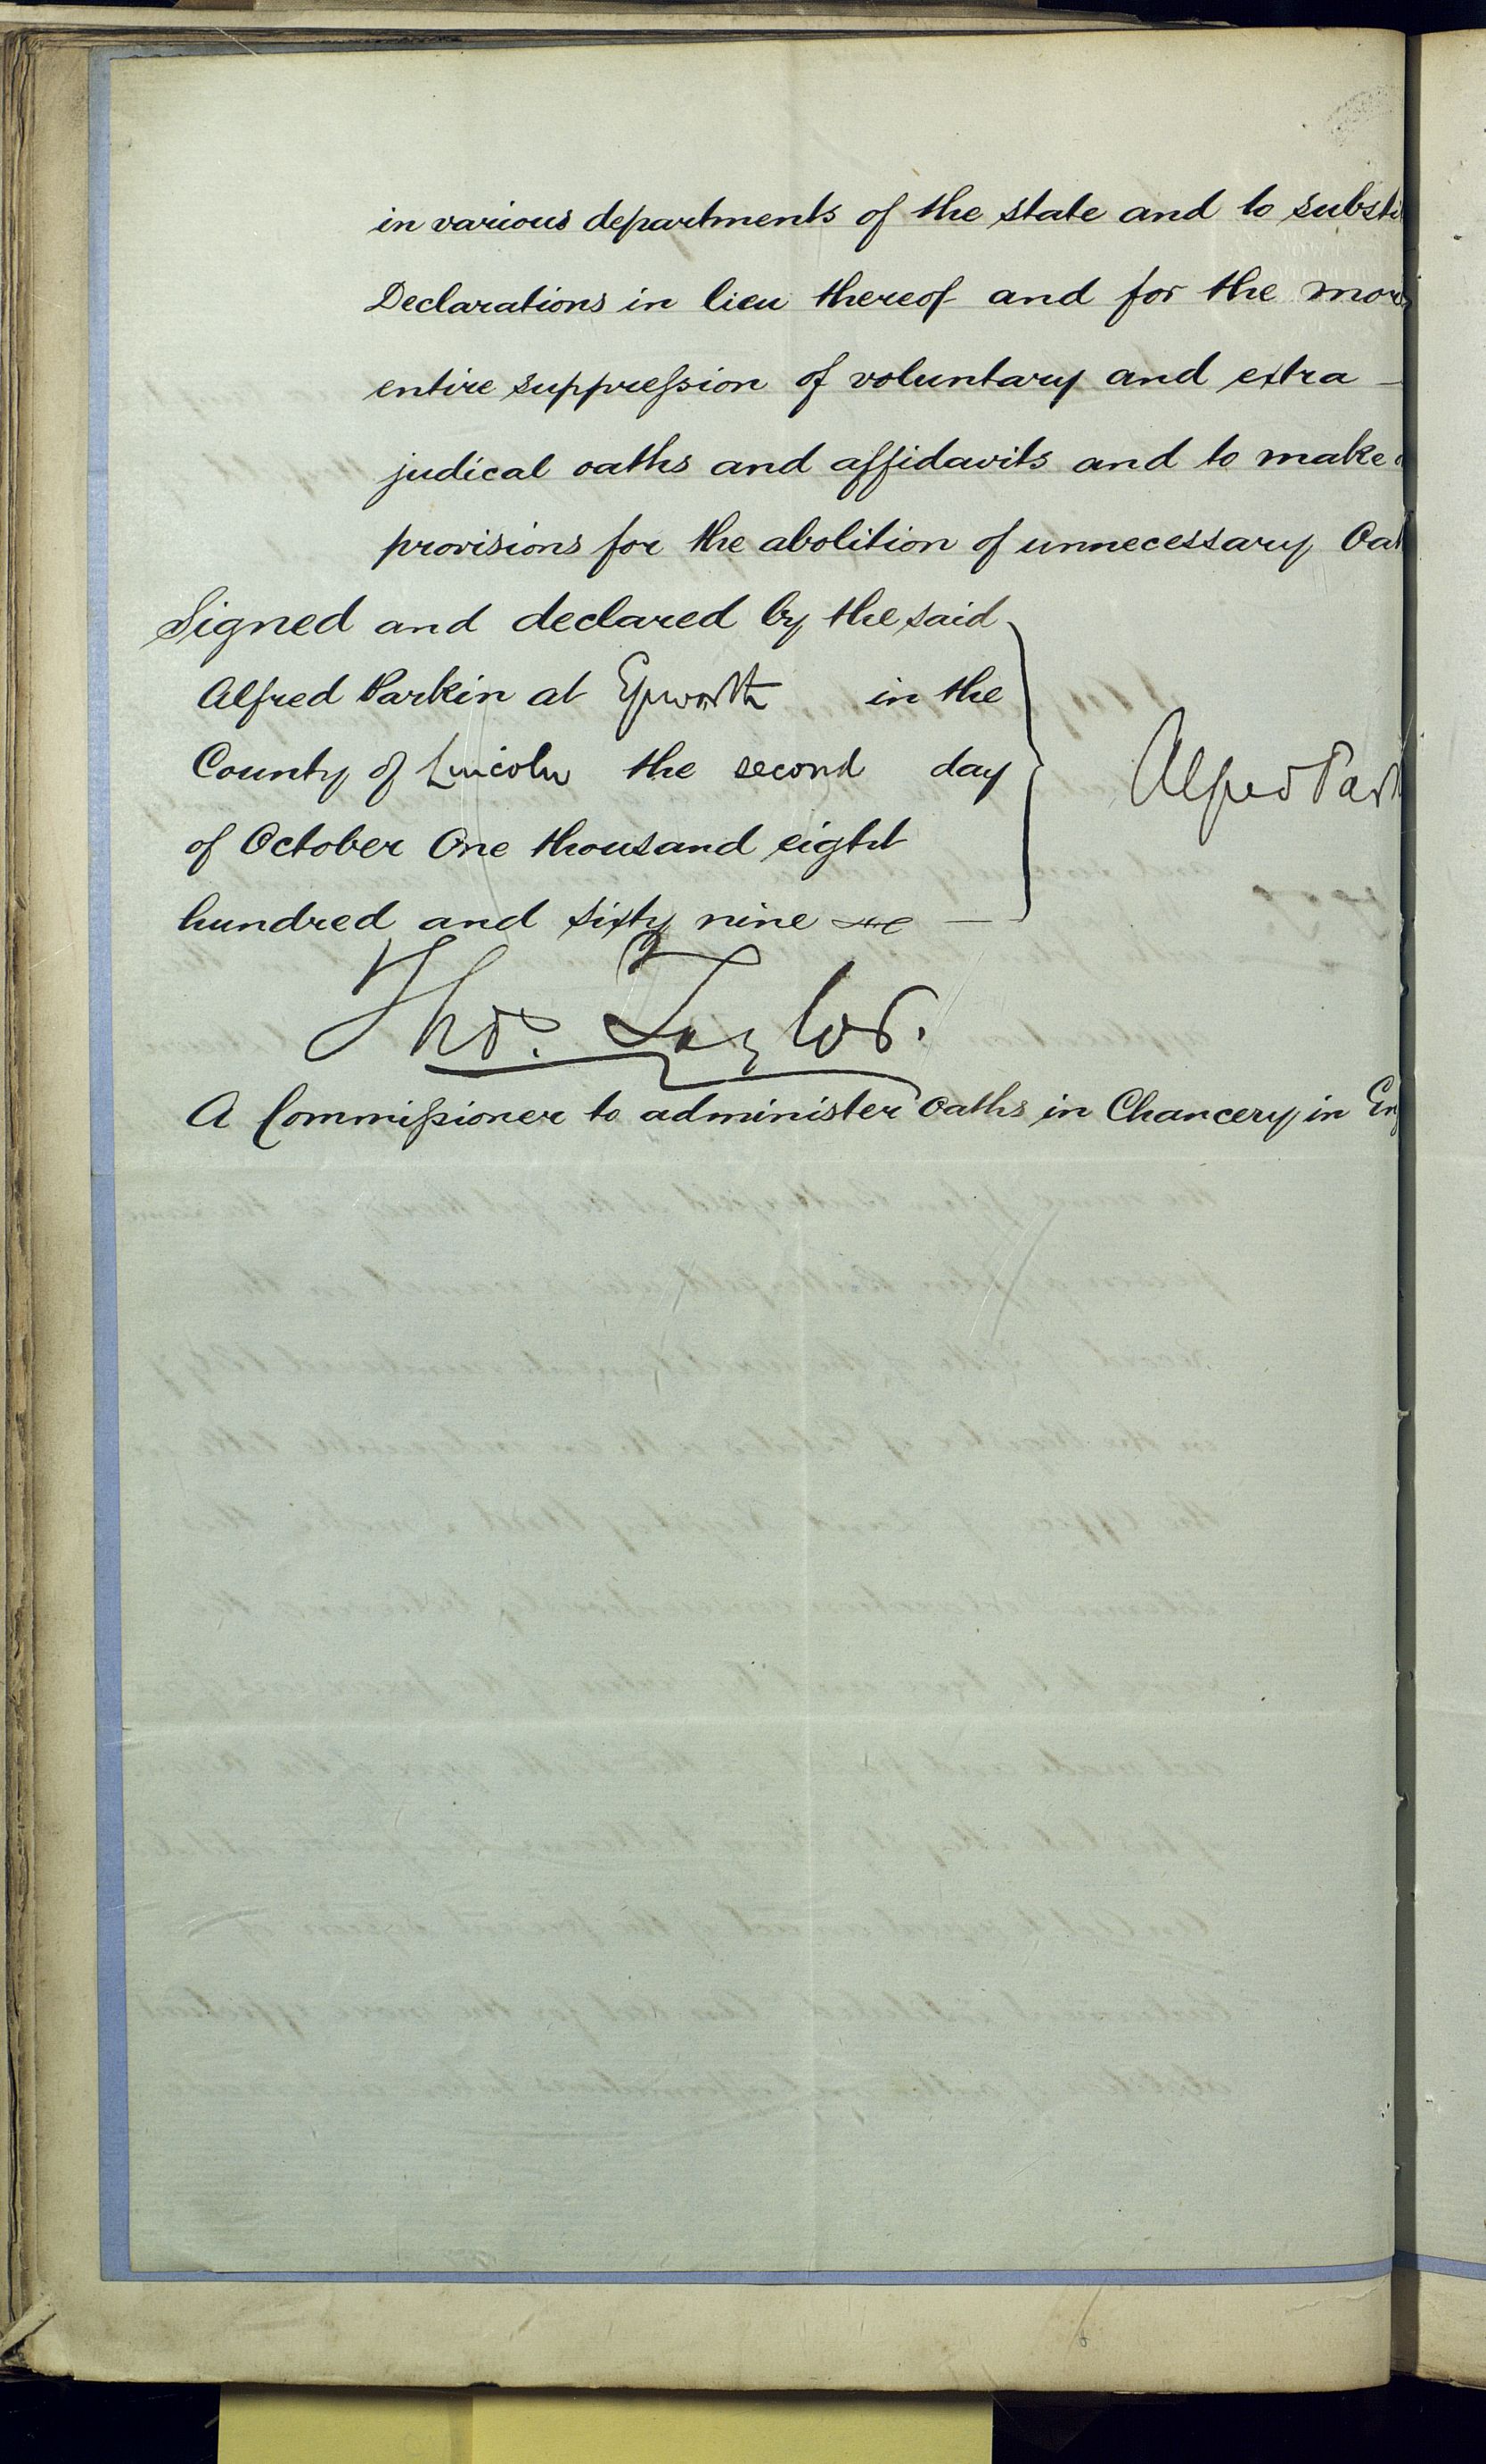 in various departments of the state and to substi
Declarations in lieu thereof and for the more
entire suppression of voluntary and extra –
judical oaths and affidavits and to make
provisions for the abolition of unnecessary Oat
Signed and declared by the said
Alfred Parkin at Epworth in the
County of Lincoln the second day
of October One thousand eight
hundred and sixty nine —
Alfred Park
Thos. Taylor.
A Commissioner to administer Oaths in Chancery in Eng